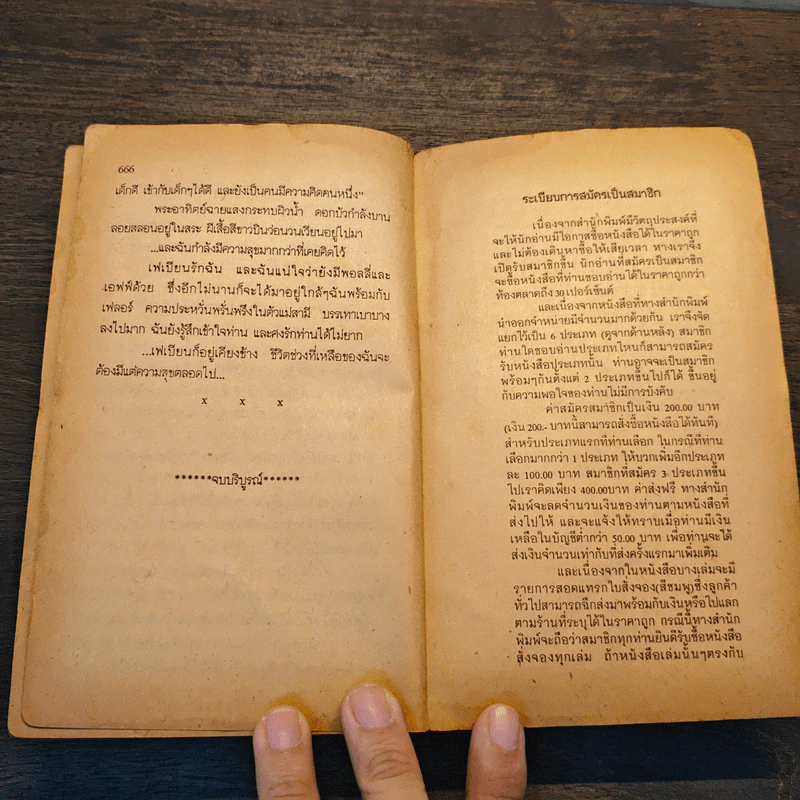 666
เด็กดี เข้ากับเด็กๆได้ดี และยังเป็นคนมีความคิดคนหนึ่ง"
พระอาทิตย์ฉายแสงกระทบผิวน้ำ ดอกบัวกำลังบาน
ลอยสลอนอยู่ในสระ ผีเสื้อสีขาวบินว่อนวนเวียนอยู่ไปมา
...และฉันกำลังมีความสุขมากกว่าที่เคยคิดไว้
เฟเบียนรักฉัน และฉันแน่ใจว่ายังมีพอลลี่และ
เอฟฟี่ด้วย ซึ่งอีกไม่นานก็จะได้มาอยู่ใกล้ๆฉันพร้อมกับ
เฟลอร์ ความประหวั่นพรั่นพรึงในตัวแม่สามี บรรเทาเบาบาง
ลงไปมาก ฉันยังรู้สึกเข้าใจท่าน และคงรักท่านได้ไม่ยาก
...เฟเบียนก็อยู่เคียงข้าง ชีวิตช่วงที่เหลือของฉันจะ
ต้องมีแต่ความสุขตลอดไป...
x x x
******จบบริบูรณ์******
ระเบียบการสมัครเป็นสมาชิก
เนื่องจากสำนักพิมพ์มีวัตถุประสงค์ที่
จะให้นักอ่านมีโอกาสซื้อหนังสือได้ในราคาถูก
และไม่ต้องเดินหาซื้อให้เสียเวลา ทางเราจึง
เปิดรับสมาชิกขึ้น นักอ่านที่สมัครเป็นสมาชิก
จะซื้อหนังสือที่ท่านชอบอ่านได้ในราคาถูกกว่า
ท้องตลาดถึง 30 เปอร์เซ็นต์
และเนื่องจากหนังสือที่ทางสำนักพิมพ์
นำออกจำหน่ายมีจำนวนมากด้วยกัน เราจึงจัด
แยกไว้เป็น 6 ประเภท (ดูจากด้านหลัง) สมาชิก
ท่านใดชอบอ่านประเภทไหนก็สามารถสมัคร
รับหนังสือประเภทนั้น ท่านอาจจะเป็นสมาชิก
พร้อมๆกันตั้งแต่ 2 ประเภทขึ้นไปก็ได้ ขึ้นอยู่
กับความพอใจของท่านไม่มีการบังคับ
ค่าสมัครสมาชิกเป็นเงิน 200.00 บาท
(เงิน 200.- บาทนี้สามารถสั่งซื้อหนังสือได้ทันที)
สำหรับประเภทแรกที่ท่านเลือก ในกรณีที่ท่าน
เลือกมากกว่า 1 ประเภท ให้บวกเพิ่มอีกประเภท
ละ 100.00 บาท สมาชิกที่สมัคร 3 ประเภทขึ้น
ไปเราคิดเพียง 400.00บาท ค่าส่งฟรี ทางสำนัก
พิมพ์จะลดจำนวนเงินของท่านตามหนังสือที่
ส่งไปให้ และจะแจ้งให้ทราบเมื่อท่านมีเงิน
เหลือในบัญชีต่ำกว่า 50.00 บาท เพื่อท่านจะได้
ส่งเงินจำนวนเท่ากับที่ส่งครั้งแรกมาเพิ่มเติม
และเนื่องจากในหนังสือบางเล่มจะมี
รายการสอดแทรกใบสั่งจอง(สีชมพู)ซึ่งลูกค้า
ทั่วไปสามารถฉีกส่งมาพร้อมกับเงินหรือไปแลก
ตามร้านที่ระบุได้ในราคาถูก กรณีนี้ทางสำนัก
พิมพ์จะถือว่าสมาชิกทุกท่านยินดีรับซื้อหนังสือ
สั่งจองทุกเล่ม ถ้าหนังสือเล่มนั้นๆตรงกับ